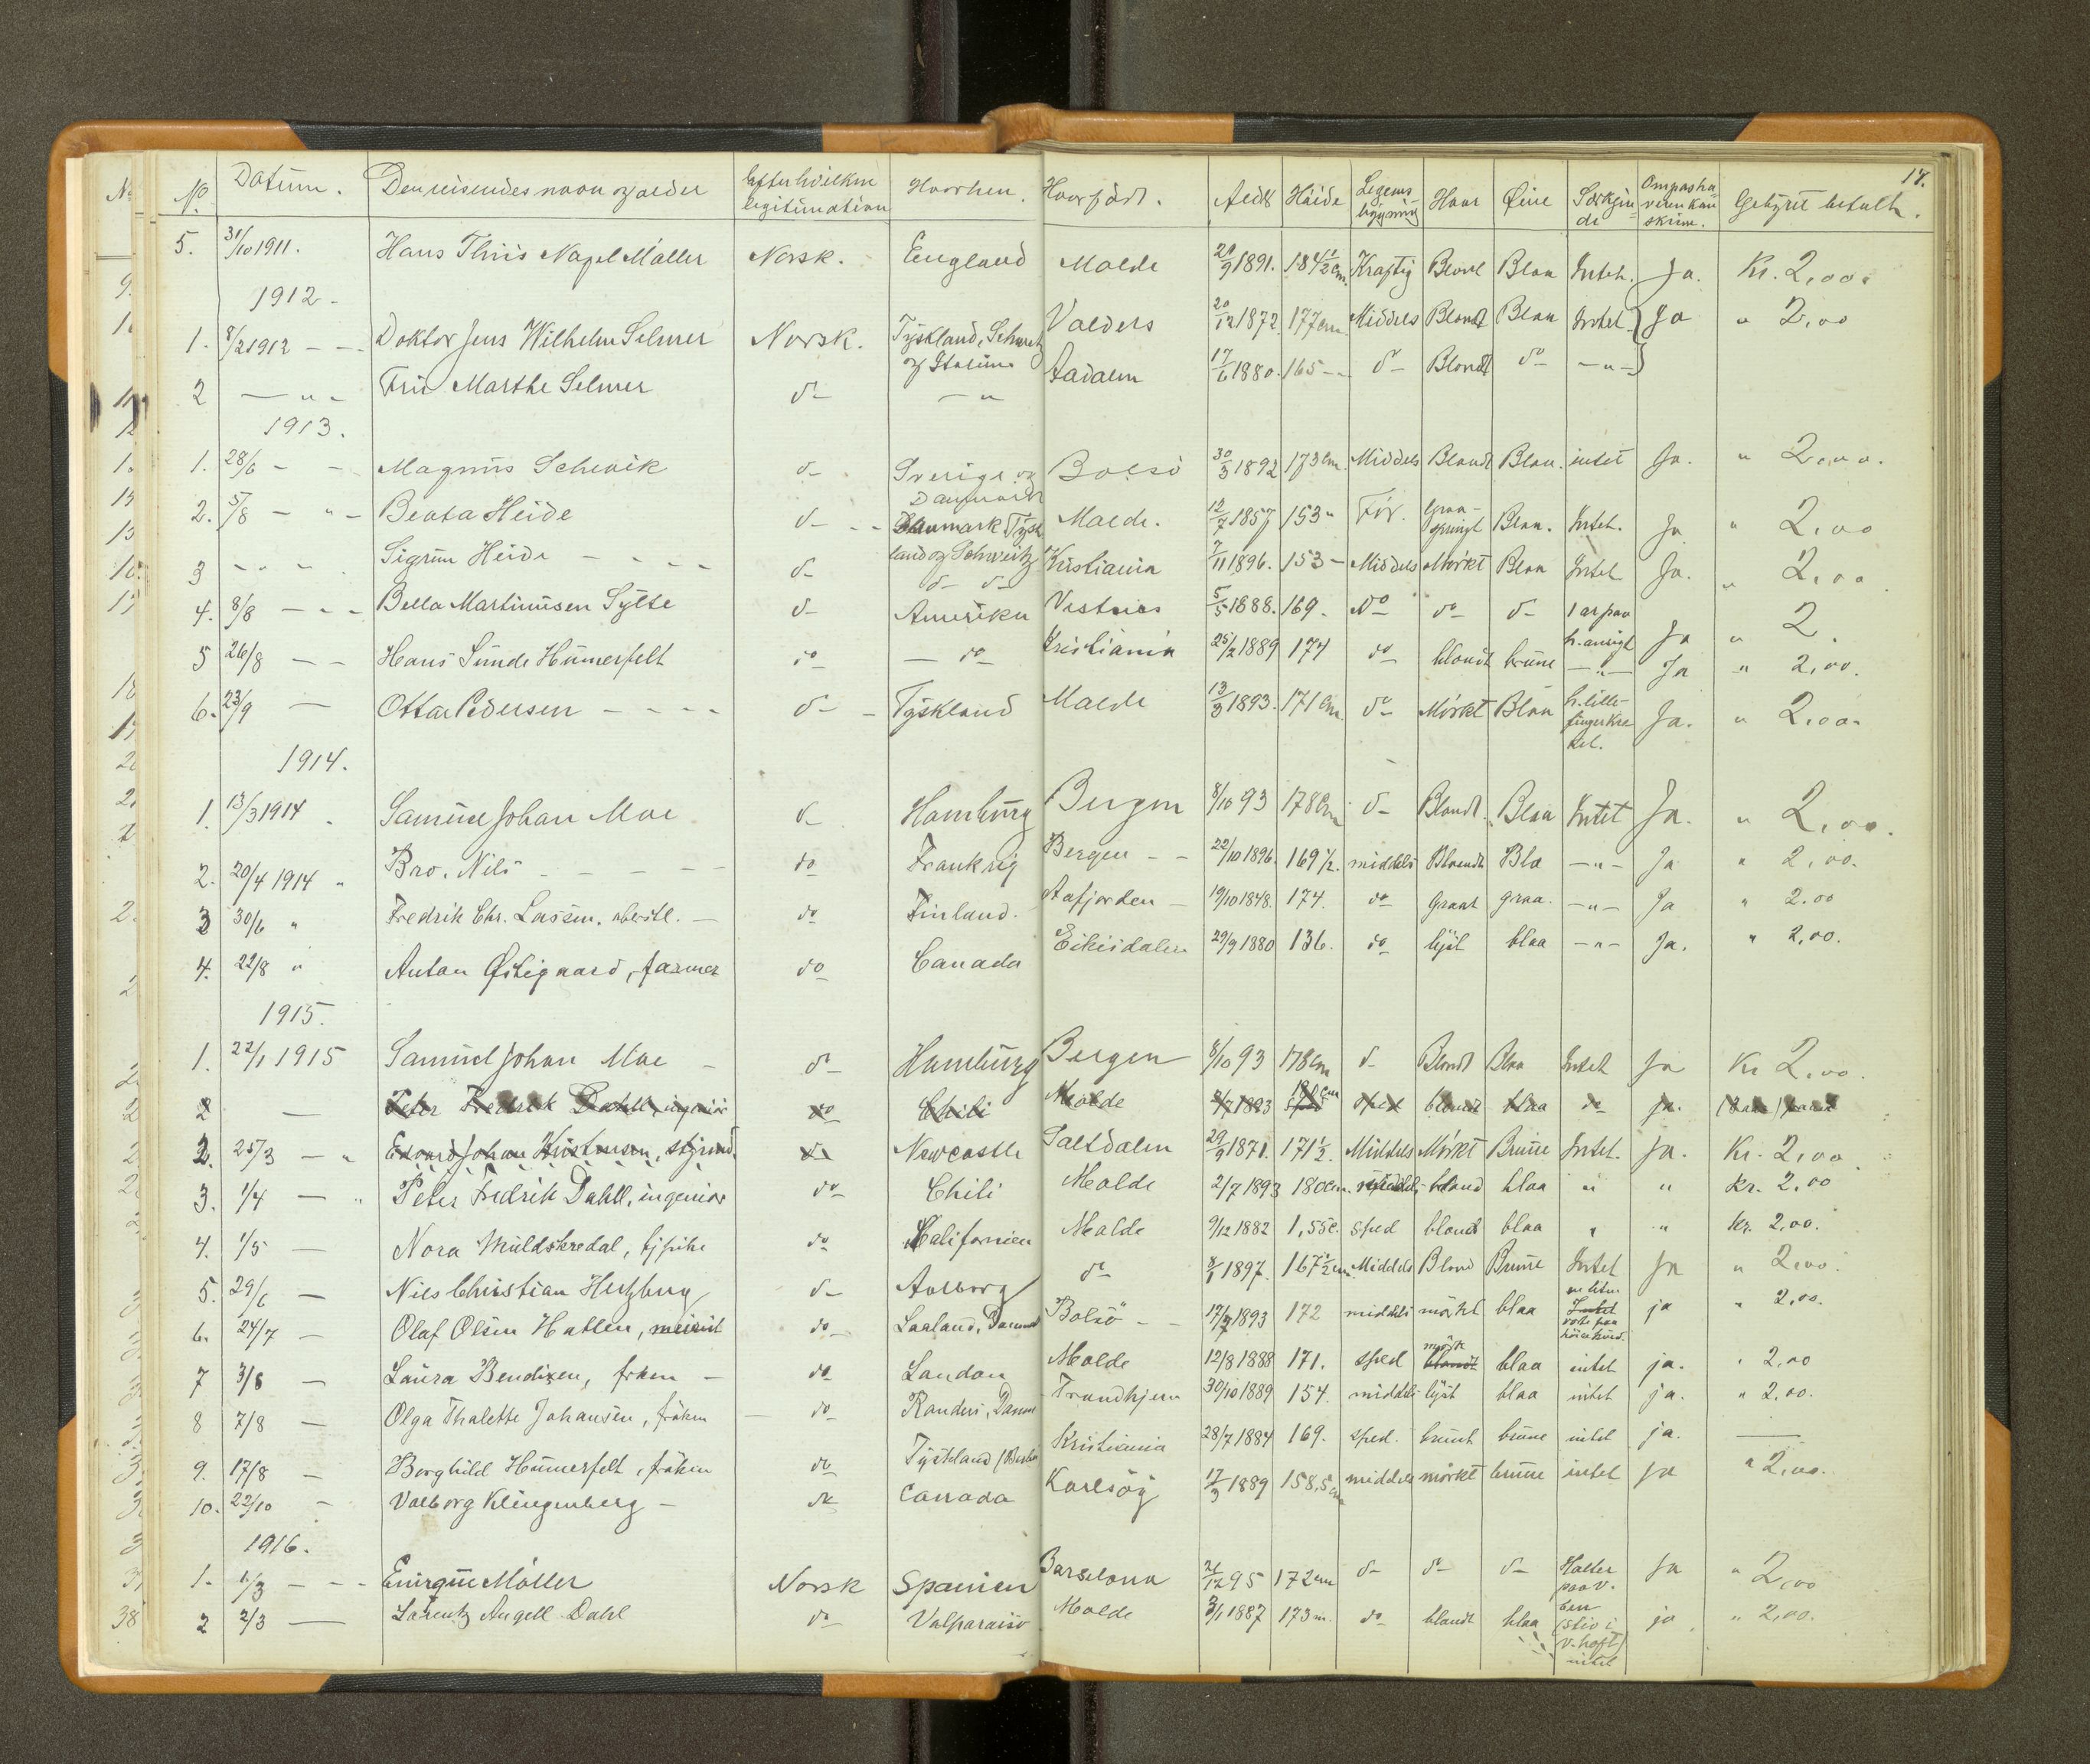 17.
No. Datum. Den reisendes navn og alder Efter hvilken legitimation Hvorhen. Hvor født. Alder Høide Legems bygning Haar Øine Særkjen=de Om pasha=veren kan skrive. Gebyret betalt.
5. 31/10 1911. Hans Thiis Nagel Møller Norsk. England Molde 29/9 1891. 184 1/2 cm. Kraftig Blond Blaa Intet. Ja. Kr. 2,00.
1912 -
1. 8/2 1912 - - Doktor Jens Wilhelm Selmer Norsk. Tyskland, Schweitz og Italien Valders 20/12 1872 177 cm Middels Blondt Blaa Intet } Ja " 2,00
2 — " - Fru Marthe Selmer do - — " Aadalen 17/6 1880. 165 - do - Blondt do - - " - }
1913.
1. 28/6 - - Magnus Schevik do - Sverige og Danmark Bolsø 30/3 1892 173 cm. Middels Blondt Blaa. intet Ja. " 2,00.
2. 5/8 - " - Beata Heide do - - - Danmark Tysk land og Schweitz Molde. 12/7 1857 153 " Før. Graa-sprængt Blaa. Intet. Ja " 2,00
3 - " - " . Sigrun Heide - - - - do - do - do - Kristiania 7/11 1896. 153 - Middels Mørkt Blaa Intet Ja. " 2,00
4. 8/8 - - - Bella Martinusen Sylte do - Amerika Vestnes 5/5 1888. 169. do do - do - 1 ar paa h. ansigt Ja " 2.
5 26/8 - - Hans Sunde Humerfelt do - — do - Kristiania 25/2 1889 174 do - blondt brune — " — Ja " 2,00.
6. 23/9 — Ottar Pedersen - - - - do - - Tyskland Molde 13/3 1893. 171 cm. do - Mørkt Blaa h. lille-finger Ja. " 2,00.
1914.
1. 13/3 1914 . Samuel Johan Moe do - Hamburg Bergen 8/10 93 178 cm do - Blondt. Blaa Intet Ja. " 2,00.
2. 20/4 1914 " Bro. Nils - - - - - do Frankrig Bergen - - 22/10 1896. 169 1/2. middels Blondt Bla - " - Ja " 2,00.
3 30/6 " Fredrik Chr. Lassen. oberstl. — do Finland. Aafjorden - 19/10 1848. 174. do graat graa. - " - Ja " 2.00
4. 22/8 " Anton Østigaard, farmer do Canada Eikisdalen 29/9 1880 136. do lyst blaa - " - Ja. " 2,00.
1915.
1. 22/1 1915 Samuel Johan Moe - do - Hamburg Bergen 8/10 93 178 cm do - Blondt Blaa Intet Ja Kr 2,00.
2 — Peter Fredrik Dahll, ingeniør do Chili Molde 2/7 1893 180 cm sped blondt blaa do ja.
2. 25/3 — " Edvard Johan Kristensen, styrmd. do - Newcastle Saltdalen 29/9 1871. 171 1/2. Middels Mørkt Brune Intet. Ja. Kr. 2,00.
3. 1/4 — " Peter Fredrik Dahll, ingeniør do - Chili Molde 2/7 1893 180 cm. blond blaa " " Kr. 2,00
4. 1/5 — Nora Muldskredal, do - Californien Molde 9/12 1882 1,55 c. sped blondt blaa " " Kr. 2,00.
5. 29/6 — Nils Christian Hertzberg do - Aalborg do - 8/1 1897. 167 1/2 cm Middels Blond Brune Intet Ja " 2,00.
6. 24/7 — Olaf Olsen Hatlen, meierist do - Laaland, Danmark Bolsø - - 17/7 1893 172 middels mørkt blaa en liten Intet vorte paa høire kind. ja " 2,00.
7 3/8 — Laura Bendixen, frøken — do London Molde 12/8 1888 171. sped mørk blondt blaa intet ja. " 2,00
8 7/8 — Olga Thalette Johansen, frøken — do - Randers, Danm Trondhjem 30/10 1889 154. middels lyst blaa intet ja. " 2,00.
9. 17/8 — Borghild Humerfelt, frøken do Tyskland (Berlin Kristiania 28/7 1884 169. sped. brunt brune intet ja. —
10. 22/10 - Valborg Klingenberg - do Canada Karlsøy 17/3 1889 158,5 cm middels mørkt brune intet ja " 2,00.
1916.
1. 1/3 - - - Enirque Møller Norsk Spanien Barselona 26/12 95 172 cm do - do - do - Halter paa v. ben (stiv i v. hoft) Ja " 2,00
2 2/3 — Larentz Angell Dahl do - Valparaiso Molde 3/1 1887 173 m. do - blondt blaa intet ja " 2,00.